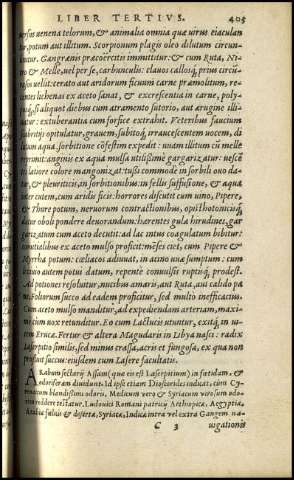 LIBER TERTIVS. 405
uersus uenena telorum, & animalia omnia quæ uirus eiaculan
tur, potum aut illitum. Scorpionum plagis oleo dilutum circun-
linitur. Gangrænis præcoercitis immittitur: & cum Ruta, Ni-
tro & Melle, uel per se, carbunculis: clauos callosq́ prius circū-
rasos uellit: cerato aut aridorum ficuum carne præmolitum, re-
centes lichenas ex aceto sanat, & excrescentia in carne, polyp-
q́; si aliquot diebus cum atramento sutorio, aut ærugine illi-
tur: extuberantia cum forfice extrahit. Veteribus faucium
scabritijs opitulatur, grauem, subitoq́ irraucescentem uocem, di-
lutum aqua sorbitione cōfestim expedit: uuam illitum cū melle
reprimit: anginis ex aqua mulsa utilissime gargarizatur:
colore mangonizat: tussi commode in sorbili ouo da-
tur, & pleuriticis, in sorbitionibus: in fellis suffusione, & aquæ
inter cutem, cum aridis ficis: horrores discutit cum uino, Pipere,
& Thure potum, neruorum contractionibus, opisthotonicisq́
obuli pondere deuorandum. hærentes gulæ hirudines, gar
garizatum cum aceto decutit: ad lac intus coagulatum bibitur:
comitialibus ex aceto mulso proficit: mēses ciet, cum Pipere &
Myrrha potum: cœliacos adiuuat, in acino uuæ sumptum: cum
lixiuio autem potui datum, repente conuulsis ruptisq́; prodest.
Ad potiones resoluitur, nucibus amaris, aut Ruta, aut calido pa
ne. Foliorum succo ad eadem proficitur, sed multo inefficacius.
Cum aceto mulso manditur, ad expediendam arteriam, maxi-
me cum uox retunditur. Eo cum Lactucis utuntur, exitq́, in usu
cum Eruca. Fertur & altera Magudaris in Libya nasci: radix
Laserpitio similis, sed minus crassa, acris et fungosa, ex qua non
prosilit succus: eiusdem cum Lasere facultatis.
Arabum sectarij Assam (quæ eis est Laserpitium) in fœtidam, &
odoriferam diuidunt. Id ipse etiam Dioscorides indicat, cum Cy-
renaicum blandissimi odoris, Medicum uerò & Syriacum uirosum odo-
rem reddere testatur. Ludouici Romani patricij Aethiopica, Aegyptia,
Arabiæ fœlix & deserta, Syriaca, Indica intra uel extra Gangem na-
C 3 uigationis